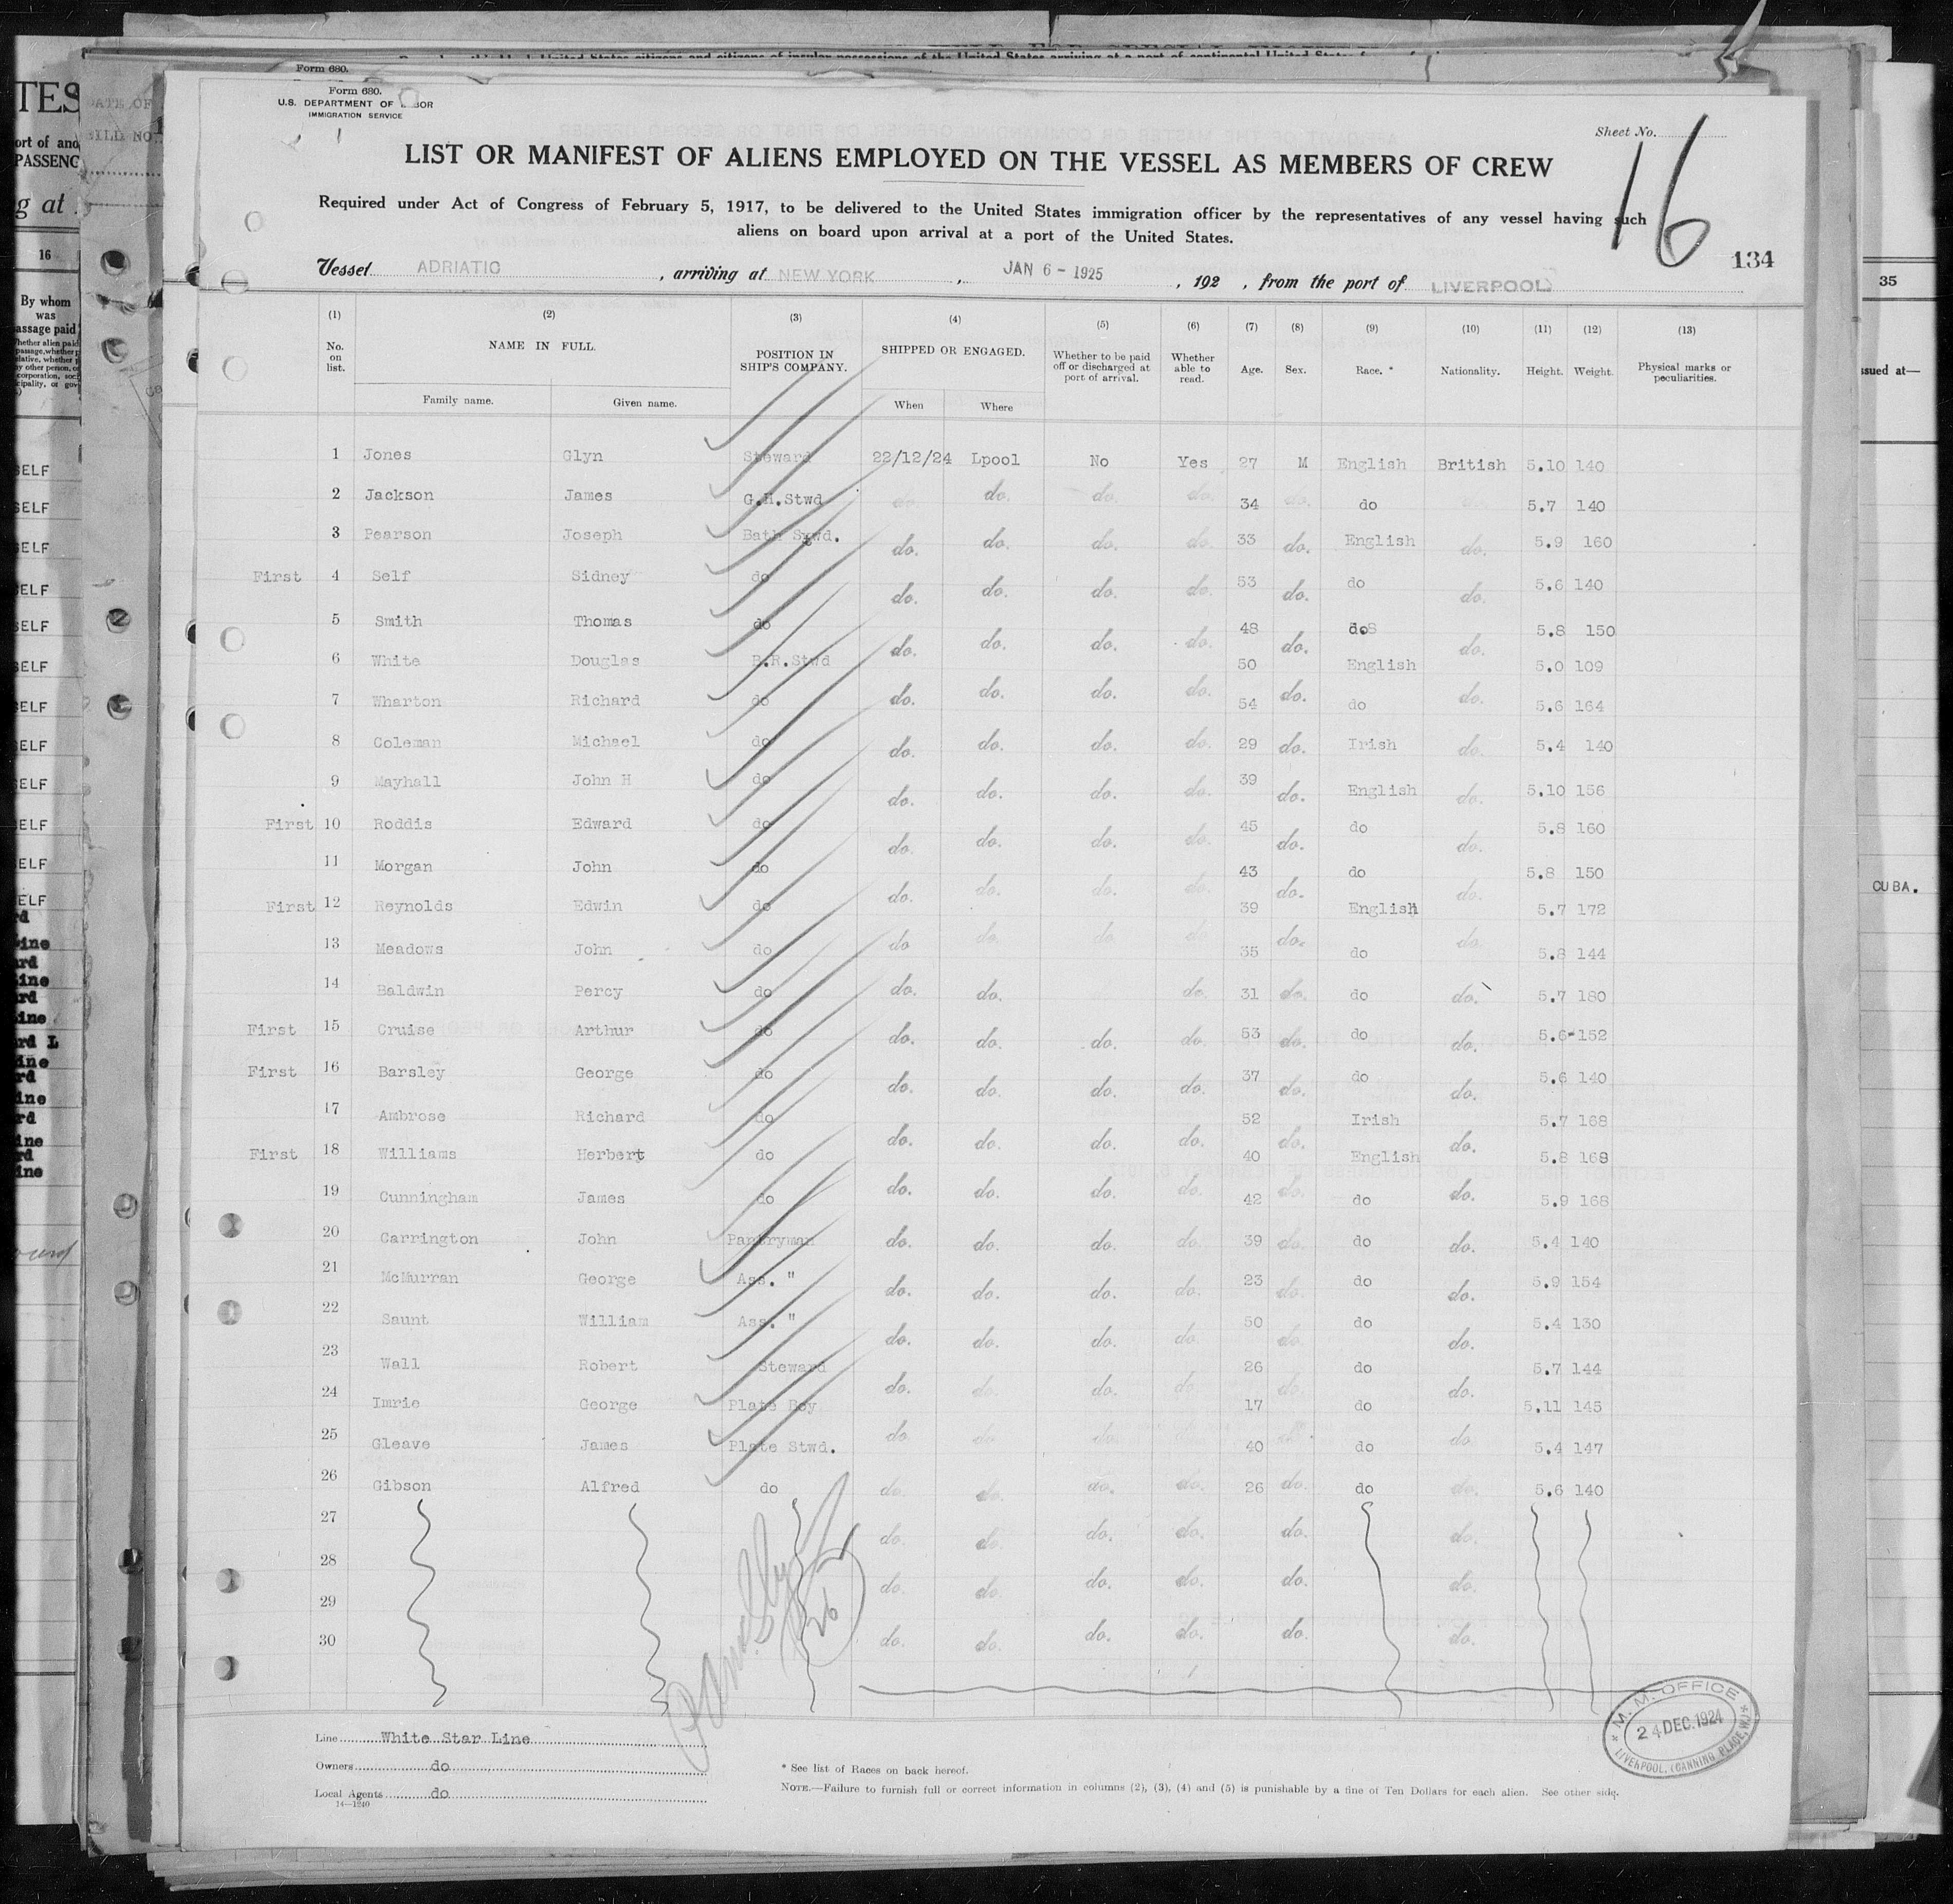 Form 680.
Form 680.
U.S. DEPARTMENT OF LABOR
IMMIGRATION SERVICE
Sheet No. 16
LIST OR MANIFEST OF ALIENS EMPLOYED ON THE VESSEL AS MEMBERS OF CREW
Required under Act of Congress of February 5, 1917, to be delivered to the United States immigration officer by the representatives of any vessel having such
aliens on board upon arrival at a port of the United States.
134
Vessel ADRIATIC, arriving at NEW YORK, JAN 6 - 1925, 192 , from the port of LIVERPOOL
(1) (2) (3) (4) (5) (6) (7) (8) (9) (10) (11) (12) (13)
No. on list. NAME IN FULL. POSITION IN SHIP'S COMPANY. SHIPPED OR ENGAGED. Whether to be paid off or discharged at port of arrival. Whether able to read. Age. Sex. Race. * Nationality. Height. Weight. Physical marks or peculiarities.
Family name. Given name. When Where
1 Jones Glyn Steward 22/12/24 Lpool No Yes 27 M English British 5.10 140
2 Jackson James G.H.Stwd do. do. do. do. 34 do. do 5.7 140
3 Pearson Joseph Bath Stwd. do. do. do. do. 33 do. English do. 5.9 160
First 4 Self Sidney do do. do. do. do. 53 do. do do. 5.6 140
5 Smith Thomas do do. do. do. do. 48 do. do do. 5.8 150
6 White Douglas B.R.Stwd 50 English 5.0 109
7 Wharton Richard do do. do. do. do. 54 do. do do. 5.6 164
8 Coleman Michael do do. do. do. do. 29 do. Irish do. 5.4 140
9 Mayhall John H do do. do. do. do. 39 do. English do. 5.10 156
First 10 Roddis Edward do do. do. do. do. 45 do. do do. 5.8 160
11 Morgan John do do. do. do. do. 43 do. do do. 5.8 150
First 12 Reynolds Edwin do 39 English 5.7 172
13 Meadows John do do do. do. do. 35 do. do do. 5.8 144
14 Baldwin Percy do do. do. do. 31 do. do do. 5.7 180
First 15 Cruise Arthur do do. do. do. do. 53 do. do do. 5.6-152
First 16 Barsley George do do. do. do. do. 37 do. do do. 5.6 140
17 Ambrose Richard do do. do. do. do. 52 do. Irish do. 5.7 168
First 18 Williams Herbert do 40 English 5.8 168
19 Cunningham James do do. do. do. do. 42 do. do do. 5.9 168
20 Carrington John Pantryman do. do. do. do. 39 do. do do. 5.4 140
21 McMurran George Ass. " do. do. do. do. 23 do. do do. 5.9 154
22 Saunt William Ass. " do. do. do. do. 50 do. do do. 5.4 130
23 Wall Robert Steward do. do. do. do. 26 do. do do. 5.7 144
24 Imrie George Plate Boy 17 do 5.11 145
25 Gleave James Plate Stwd. do do. do. do. 40 do. do do. 5.4 147
26 Gibson Alfred do do. do. do. do. 26 do. do do. 5.6 140
27 do. do. do. do. do. do.
28 do. do. do. do. do. do.
29
30 do. do. do. do. do. do.
26
Line White Star Line
Owners do
Local Agents do
14—1240
* See list of Races on back hereof.
NOTE.—Failure to furnish full or correct information in columns (2), (3), (4) and (5) is punishable by a fine of Ten Dollars for each alien. See other side.
M. M. OFFICE
24 DEC. 1924
LIVERPOOL, (CANNING PLACE, W.)
TES
ort of and
PASSENG
g at
16
By whom
was
assage paid
DATE OF
35
ssued at—
CUBA.
SELF
SELF
SELF
SELF
SELF
SELF
SELF
SELF
SELF
SELF
ELF
ELF